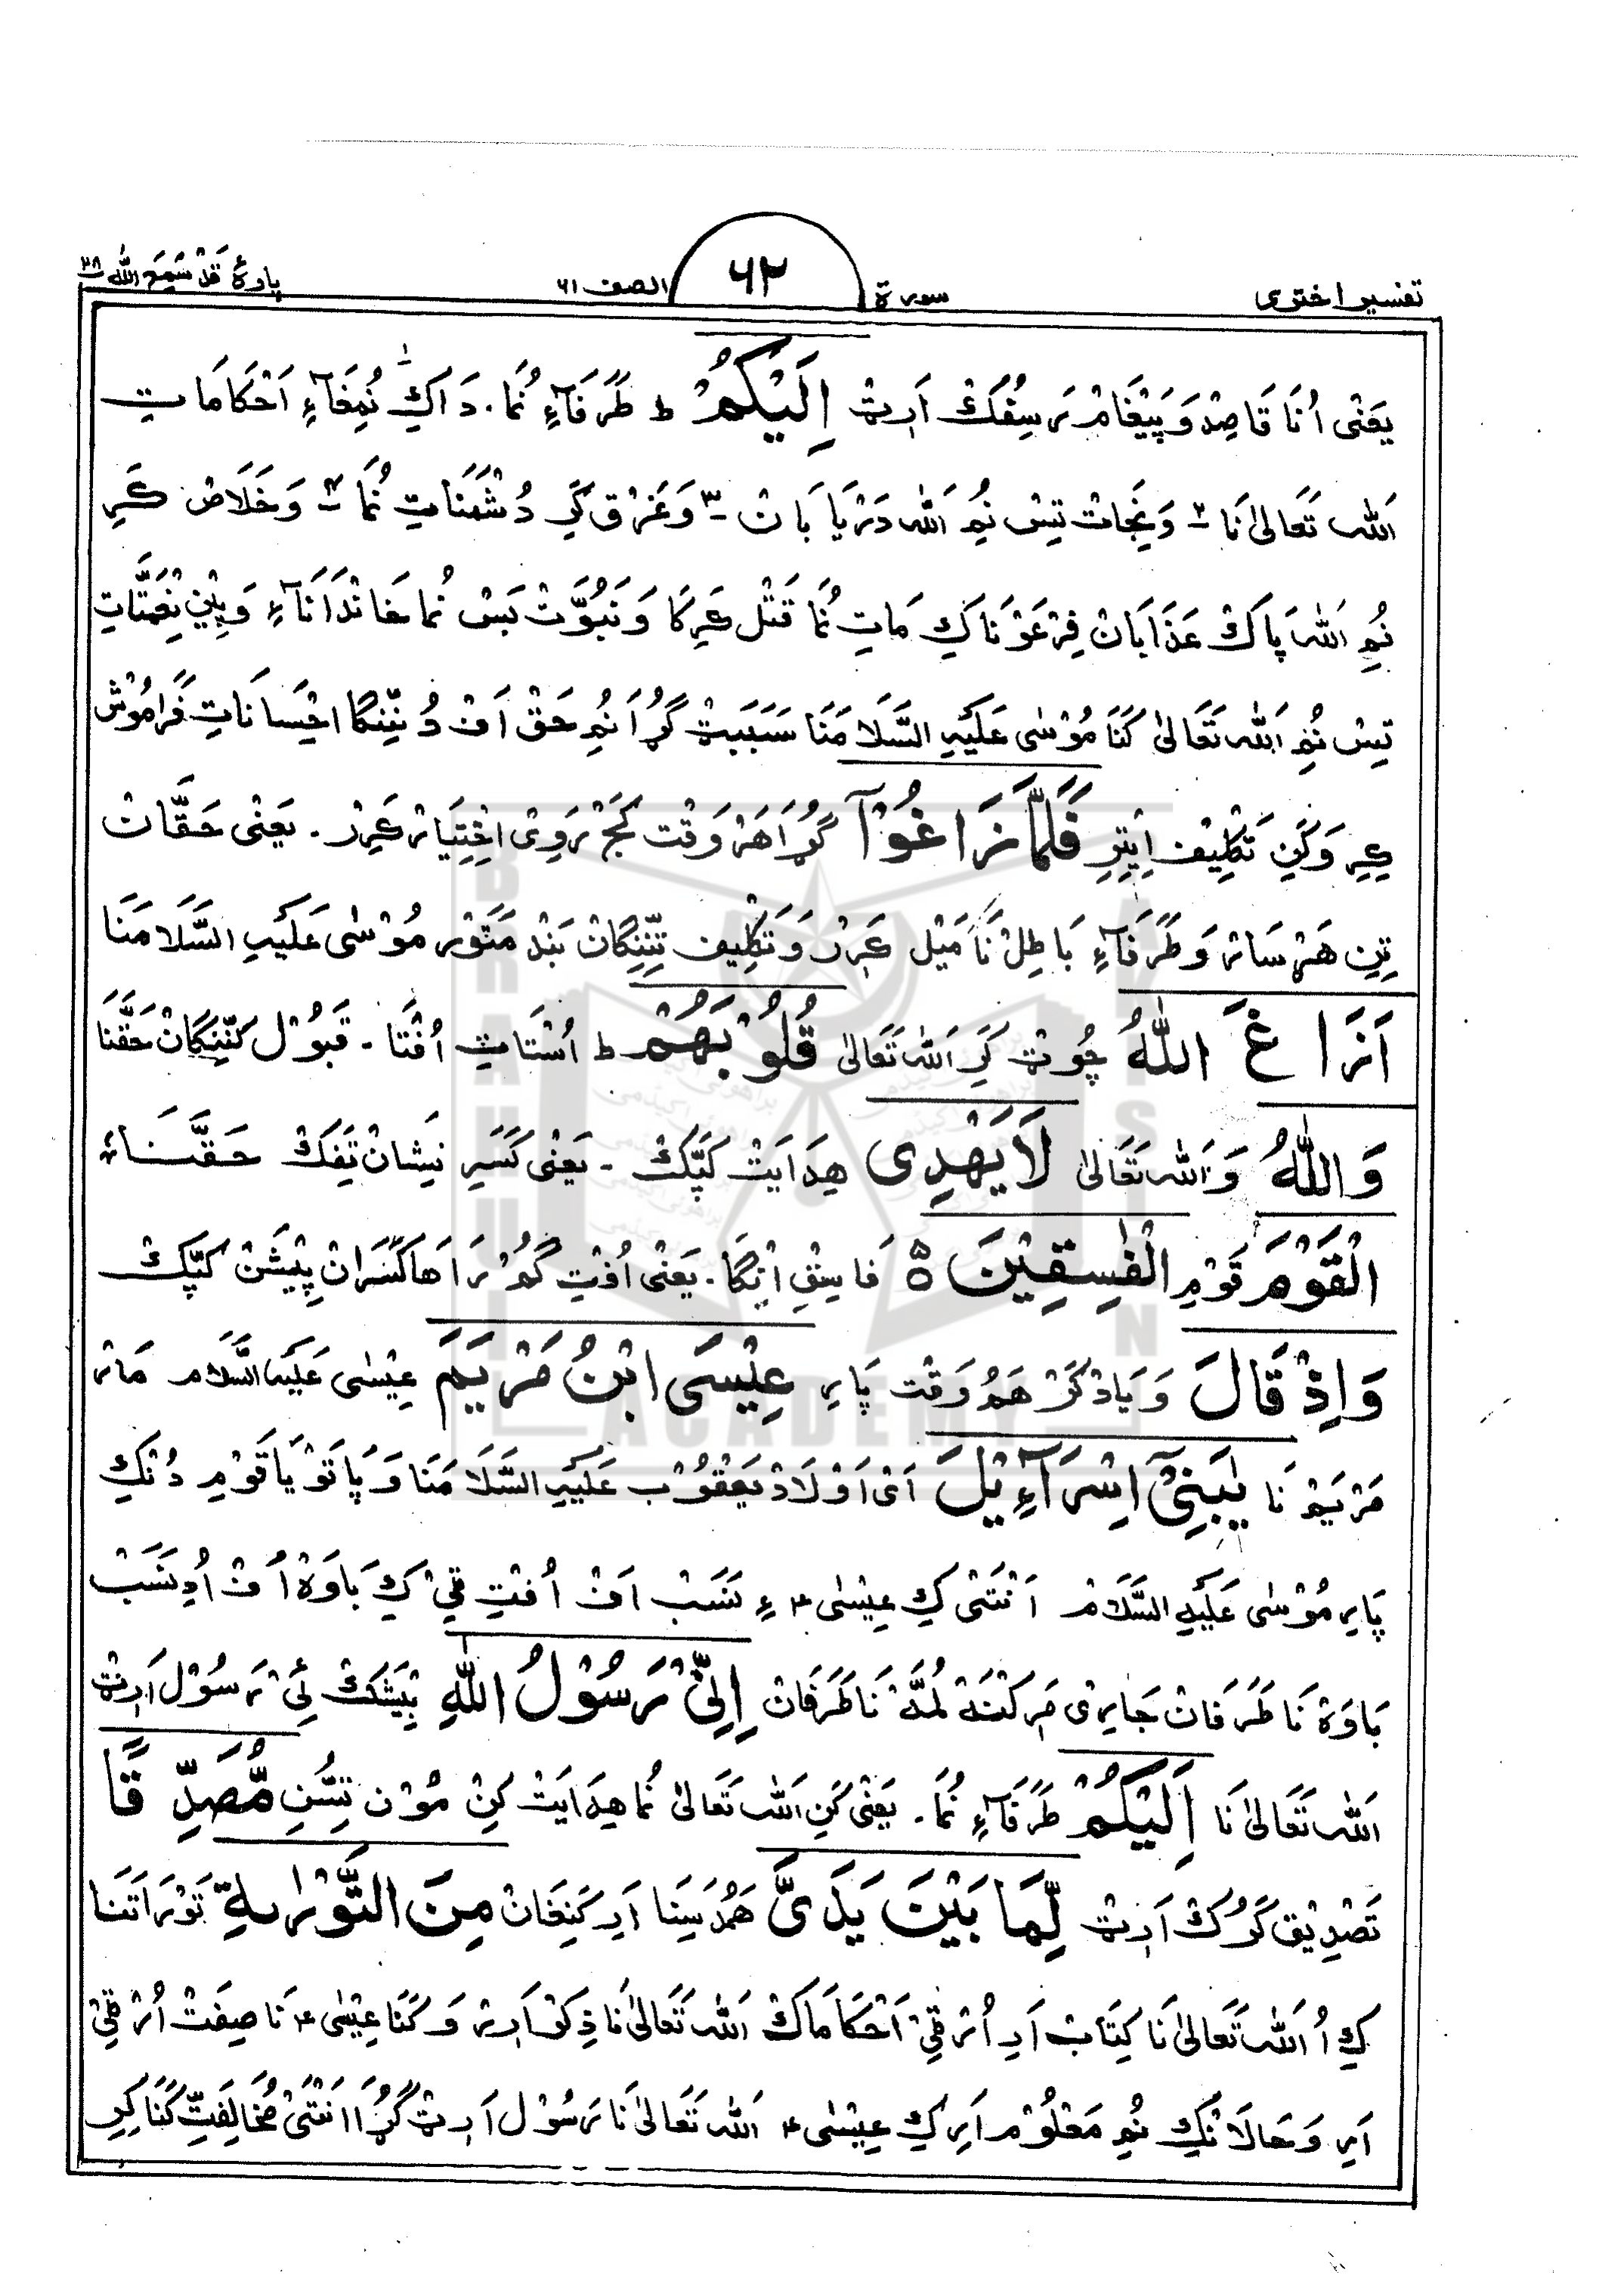 تفسیر اختری سورة ۶۲ الصف ۶۱ پارۂ قَدْ سَمِعَ اللّٰه ۲۸
یَعْنٰی اُنَا قَاصِدْ وَ پَیْغَامْ رَسِفُکْ اَرِٹْ اِلَیْکُمْ ط طَرَفَآءِ نُمَا. دَاکِ نُمِغَاءِ اَحْکَامَاتِ
اَللّٰه تَعَالیٰ نَا وَ نِجَاتْ تِسْ نُمِ اَللّٰه دَرْیَابَانْ - وَ غَرْق کَرِ دُشْمَنَاتِ نُمَا وَ خَلَاصْ کَرِ
نُمِ اَللّٰه پَاکْ عَذَابَانْ فِرْعَوْنَا کِ مَاتِ نُمَا قَتْل کَرِکَا وَ نَبُوَّتْ بَسْ نُمَا خَانْدَانَآءِ وَ پِیْنِ نِعْمَتَاتِ
تِسْ نُمِ اَللّٰه تَعَالیٰ کَنَا مُوْسٰی عَلَیْهِ السَّلَامَنَا سَبَبَٹْ گُڑَا نُمِ حَقْ اَفْ دُنِنْگَا اِحْسَانَاتِ فَرَامُوْش
کِرِ وَ کَنِ تَکْلِیْف اِیْتِرِ فَلَمَّا زَاغُوْٓا گُڑَا هَرْ وَقْت کَجْ رَوِیْ اِخْتِیَارْ کَرِرْ. یَعْنٰی حَقَّانْ
تِنِ هَرْ سَارْ وَ طَرَفَآءِ بَاطِلْ نَا مَیْل کَرِرْ وَ تَکْلِیْف تِنِنْگَانْ بَنْد مَتَوْر مُوْسٰی عَلَیْهِ السَّلَامَنَا
اَزَاغَ اللّٰهُ چُوْٹْ کَرِ اَللّٰه تَعَالیٰ قُلُوْبَهُمْ ط اُسْتَاتِ اُفْتَا - قَبُوْل کَنِنْگَانْ حَقَّنَا
وَ اللّٰهُ وَ اَللّٰه تَعَالیٰ لَا یَهْدِی هِدَایَتْ کَپَّکْ - یَعْنٰی کَسَرِ نِشَانْ تِفَکْ حَقَّنَا
الْقَوْمَ قَوْمِ الْفٰسِقِیْنَ ۵ فَاسِقِ اَنْگَا. یَعْنٰی اُفْتِ گُمْرَاهَا کَسَرَانْ پِیْشَنْ کَپَّکْ
وَ اِذْ قَالَ وَ یَادْکَرْ هَمُ وَقْت پَارِ عِیْسَی ابْنُ مَرْیَمَ عِیْسٰی عَلَیْهِ السَّلَام مَارْ
مَرْیَمْ نَا یٰبَنِیْٓ اِسْرَآءِیْلَ اَیْ اَوْلَادْ یَعْقُوْب عَلَیْهِ السَّلَامَنَا وَ پَاتَوْ یَا قَوْمِ دُنْکِ
پَارِ مُوْسٰی عَلَیْهِ السَّلَامْ اَنْتَئِی کِ عِیْسٰی ع ءِ نَسَبْ اَفْ اُفْتِ قِیْ کِ بَاوَهْ اَفْ اُدِ نَسَبْ
بَاوَهْ نَا طَرَفَانْ جَارِیْ مَرِکْنَهْ لُمَّهْ نَا طَرَفَانْ اِنِّیْ رَسُوْلُ اللّٰهِ بِیْشَکْ ئِیْ رَسُوْل اَرِٹْ
اَللّٰه تَعَالیٰ نَا اِلَیْکُمْ طَرَفَآءِ نُمَا. یَعْنٰی کَنِ اَللّٰه تَعَالیٰ نُمَا هِدَایَتْ کِنْ مُوْن تِسُّنِ مُّصَدِّقًا
تَصْدِیْق کَرُکْ اَرِٹْ لِّمَا بَیْنَ یَدَیَّ هَمُرْسِنَا اَرِ کَنِغَانْ مِنَ التَّوْرٰىةِ تَوْرَاتَنَا
کِ اُ اَللّٰه تَعَالیٰ نَا کِتَابْ اَرِ اُرْ قِیْ اَحْکَامَاکْ اَللّٰه تَعَالیٰ نَا ذِکَرْ اَرِرْ وَ کَنَا عِیْسٰی ع نَا صِفَتْ اُرْ قِیْ
اَرِ وَ حَالَانْکِ نُمِ مَعْلُوْم اَرِ کِ عِیْسٰی ع اَللّٰه تَعَالیٰ نَا رَسُوْل اَرِٹْ گُڑَا اَنْتَئِیْ مُخَالِفَتْ کَنَا کِرِ
BRAHUI ACADEMY